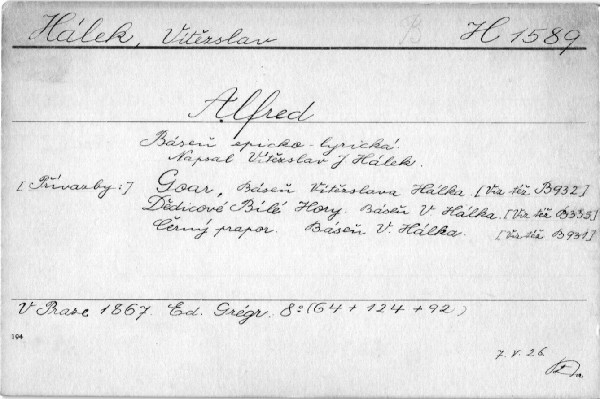 Hálek, Vítězslav H 1589
Alfred
Báseň epicko-lyrická.
Napsal Vítězslav J Hálek.
[Přívazky:] Goar, Báseň Vítězslava Hálka. [Viz též B932]
Dědicové Bílé Hory. Báseň V Hálka. [Viz též B335]
Černý prapor. Báseň V. Hálka. [Viz též B931]
V Praze 1867. Ed. Grégr. 8° (64 + 124 + 92)
104
7. V. 26.